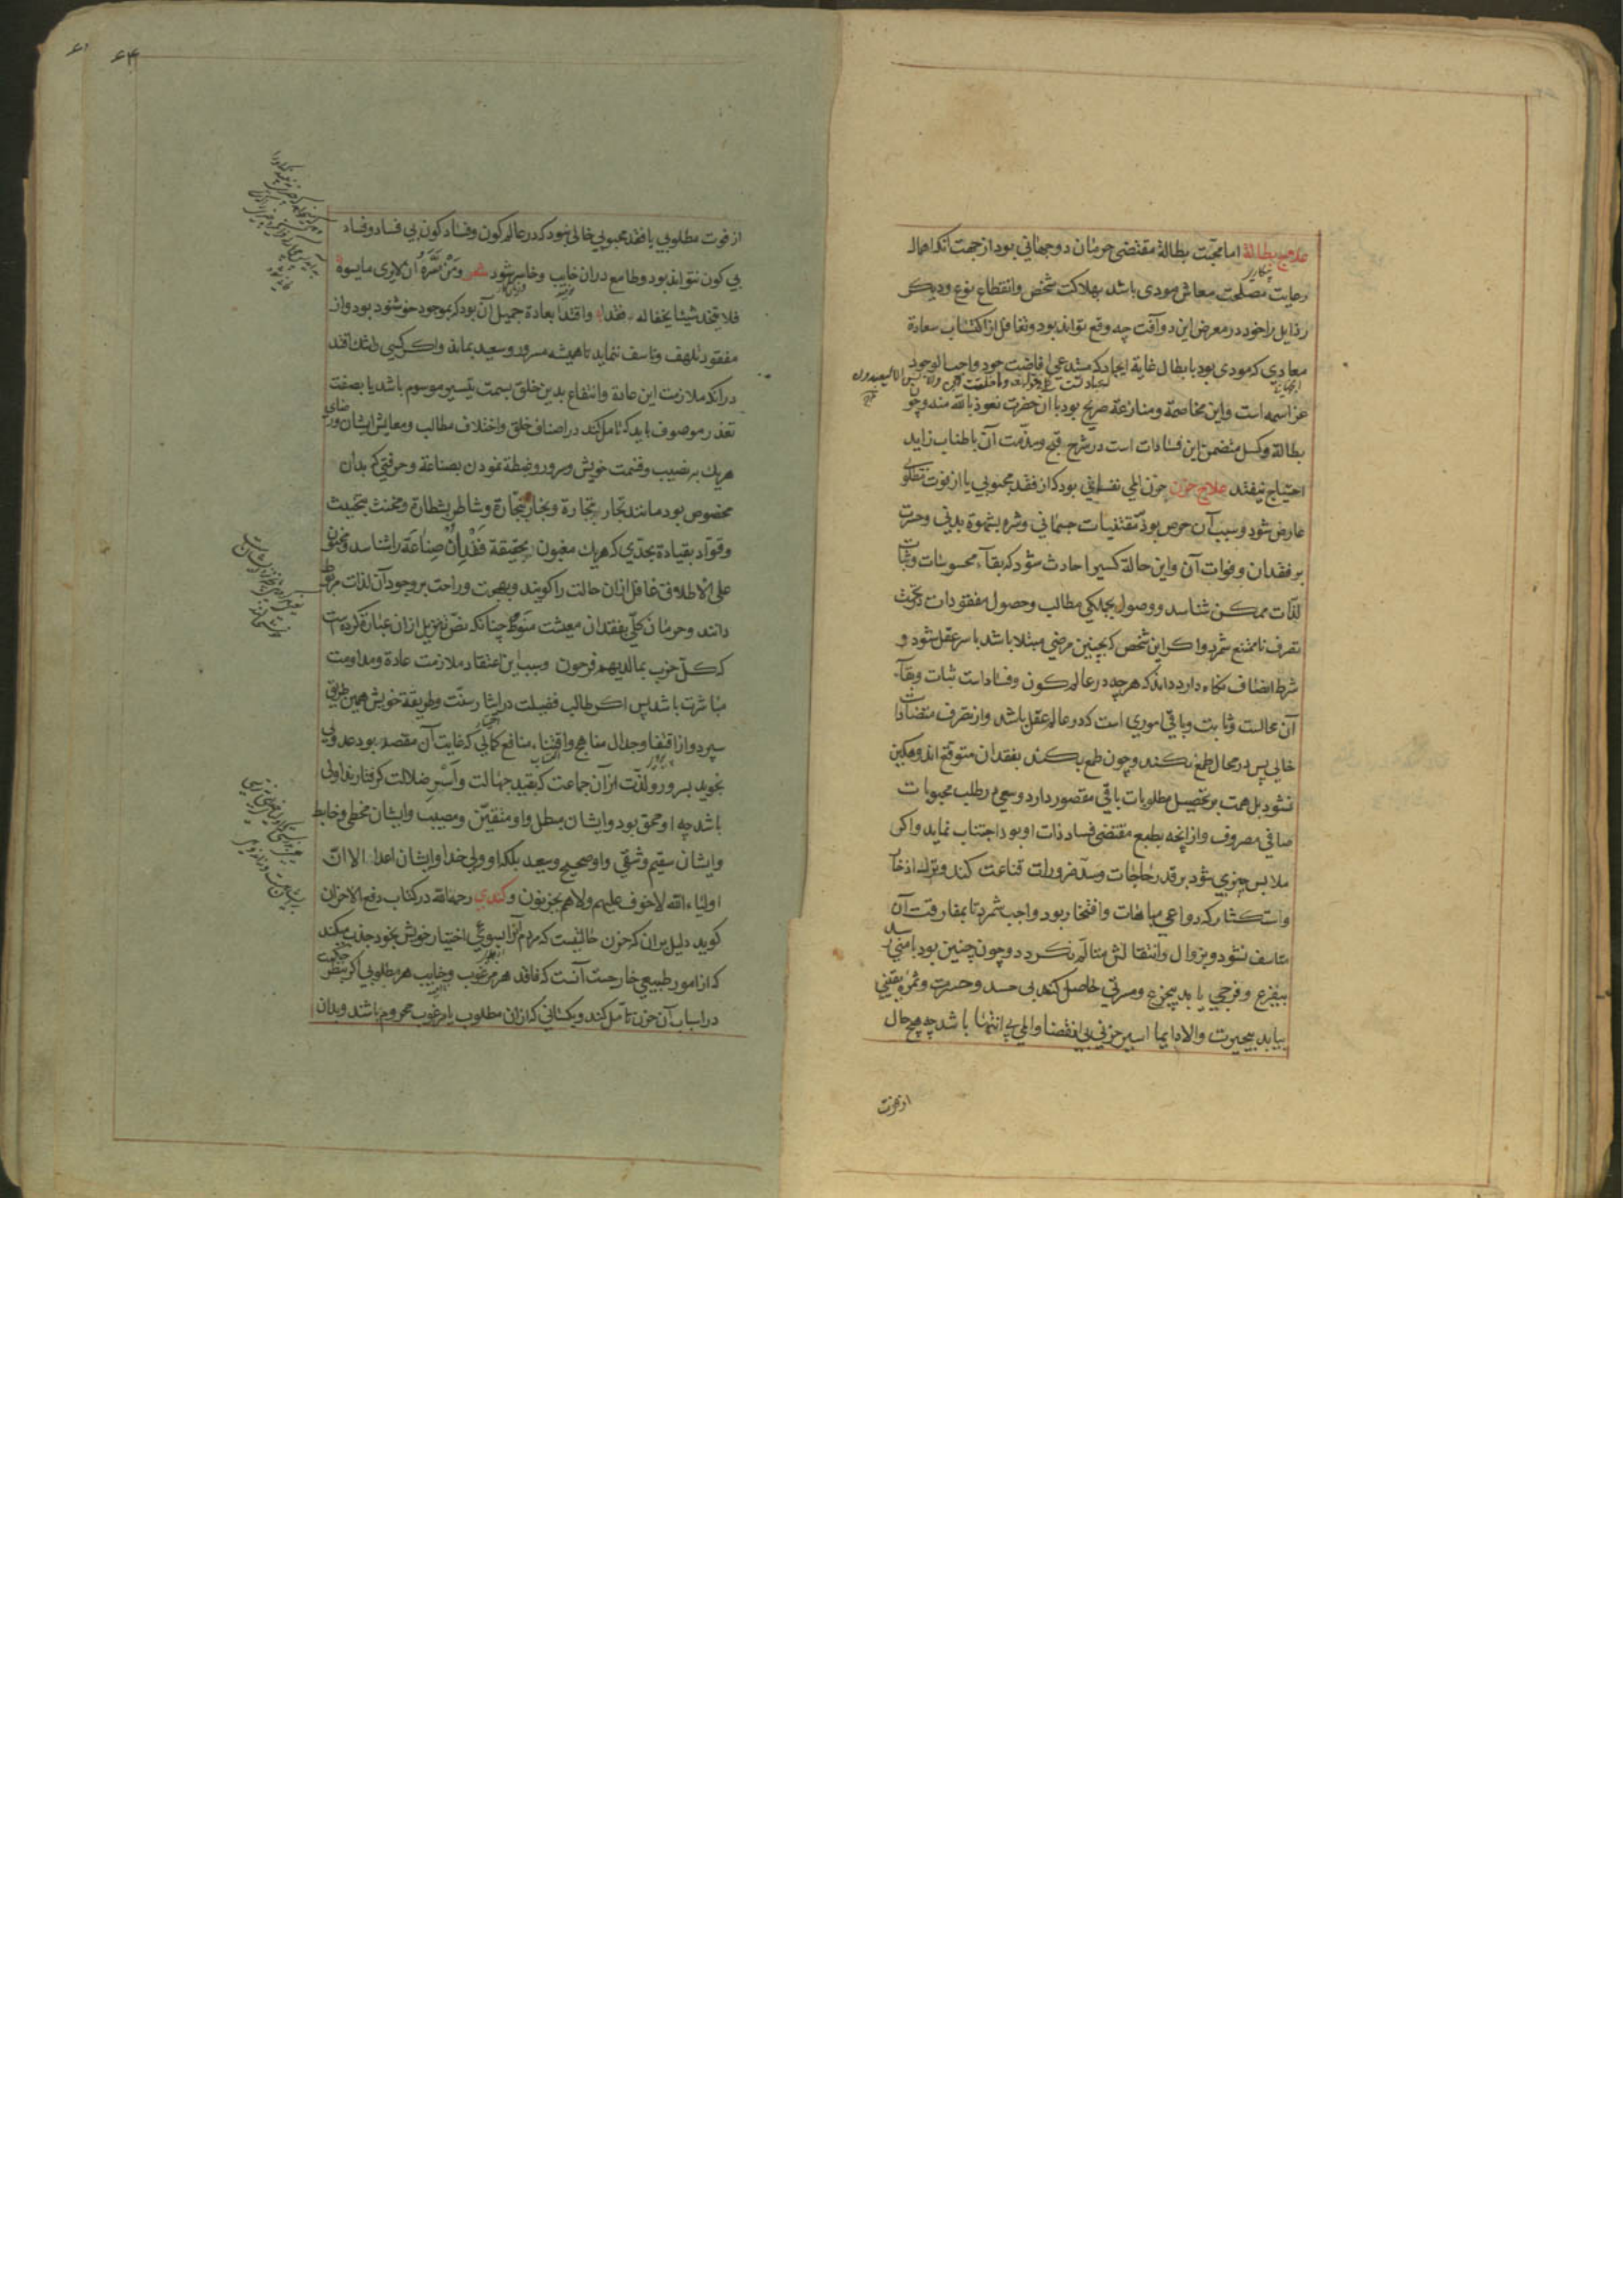 علاج بطالة اما محبّت بطالة مقتضی حرمان دو جهانی بود از جهت آنکه اهمال
رعایت مصلحت معاش مودی باشد بهلاکت شخص و انقطاع نوع و دیگر
رذایل را خود در معرض این دو آفت چه وقع تواند بود و تغافل از اکتساب سعادة
معادی که مودی بود بابطال غایة ایجاد که مستدعی افاضت جود واجب الوجود
عز اسمه است و این مخاصمة و منازعة صریح بود با آن حضرت نعوذ بالله منه و چون
بطالة و کسل متضمن این فسادات است در شرح قبح و مذمت آن باطناب زاید
احتیاج نیفتد علاج حزن حزن المی نفسانی بود که از فقد محبوبی یا از فوت مطلوبی
عارض شود و سبب آن حرص بود بر مقتنیات جسمانی و شره بشهوة بدنی و حسرت
بر فقدان و فوات آن و این حالة کسی را حادث شود که بقاء محسوسات و ثبات
لذّات ممکن شناسد و وصول بجملگی مطالب و حصول مفقودات در تحت
تصرف ناممتنع شمرد و اگر این شخص که بچنین مرضی مبتلا باشد با سر عقل شود و
شرط انصاف نگاه دارد داند که هر چه در عالم کون و فساد است ثبات و بقآء
آن محالست و ثابت و باقی اموری است که در عالم عقل باشد و از تصرف متضادات
خالی پس در محال طمع نکند و چون طمع نکند بفقدان متوقع اندوهگین
نشود بل همت بر تحصیل مطلوبات باقی مقصور دارد و سعی در طلب محبوبات
صافی مصروف و از انچه بطبع مقتضی فساد ذات او بود اجتناب نماید و اگر
ملابس چیزی شود بر قدر حاجات و سدّ ضرورات قناعت کند و ترک ادخار
و استکثار که دواعی مباهات و افتخار بود واجب شمرد تا بمفارقت آن
متاسف نشود و بزوال و انتقالش متالّم نگردد و چون چنین بود بامنی رسد
بیفزع و فرحی یابد بیجزع و مسرتی حاصل کند بی حسد و حسرت و ثمرهٔ یقینی
بیابد بیحیرت و الا دایما اسیر حزنی بی انقضا و المی بی انتها باشد چه هیچ حال
از فوت
۶۴
از فوت مطلوبی یا فقد محبوبی خالی نبود که در عالم کون و فساد کون بی فساد و فساد
بی کون نتواند بود و طامع دران خایب و خاسر شود شعر وَمَنْ سَرَّهُ أن لا یری مایسوءه
فلا یتخذ شیئا یخفاله فقدا و اقتدا بعادة جمیل آن بود که بموجود خوشنود بود و از
مفقود تلهف و تاسف ننماید تا همیشه مسرور و سعید بماند و اگر کسی را شک افتد
در انکه ملازمت این عادة و انتفاع بدین خلق بسمت تیسیر موسوم باشد یا بصفت
تعذر موصوف باید که تامل کند در اصناف خلق و اختلاف مطالب و معایش ایشان و رضای
هریک بنصیب و قسمت خویش و سرور و غبطة نمودن بصناعة و حرفتی که بدان
مخصوص بود مانند تجار بتجارة و نجار بنجّارة و شاطر بشطارة و مخنث بتخنیث
و قوّاد بقیادة بحدّی که هریک مغبون بحقیقة فَقْدِ اُنْ صِناعَة را شناسد و مجنون
علی الاطلاق غافل ازان حالت را گویند و بهجت و راحت بر وجود آن لذات مربوط
دانند و حرمان کلّی بفقدان معیشت منوط چنانکه نصّ تنزیل ازان عبارة کرده است
که کلّ حزب بما لدیهم فرحون و سبب این اعتقاد ملازمت عادة و مداومت
مباشرت باشد پس اگر طالب فضیلت در ایثار سنّت و طریقة خویش همین طریق
سپرد و از اقتفا وجدال مناهج و اقتناء منافع کمالی که غایت آن مقصد بود عدولی
نجوید بسرور و لذّت از آن جماعت که بقید جهالت و اَسْرِ ضلالت گرفتارند اولی
باشد چه او محق بود و ایشان مبطل و او متیقّن و مصیب و ایشان مخطی و خابط
و ایشان سقیم و شقی و او صحیح و سعید بلکه او ولی خدا و ایشان اعدا الا انّ
اولیاء الله لا خوف علیهم ولا هم یحزنون و کندی رحمه الله در کتاب دفع الاحزان
گوید دلیل بران که حزن حالتیست که مردم آنرا بسوء اختیار خویش بخود جذب میکند
که از امور طبیعی خارجست آنست که فاقد هر مرغوب و خایب هر مطلوبی اگر بنظر حکمت
در اسباب آن حزن تامّل کند و بکسانی که ازان مطلوب یا مرغوب محروم باشند و بدان